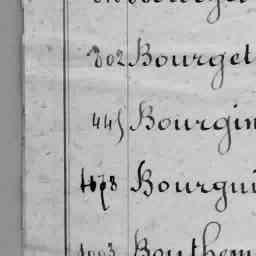 802 Bourget
445 Bourgin
1078 Bourgui
1003 Bouthem